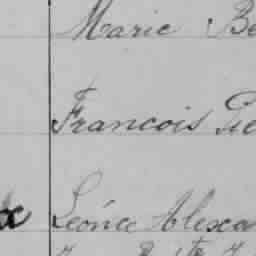 Marie Be
Francois Pie
x Léonce Alexa